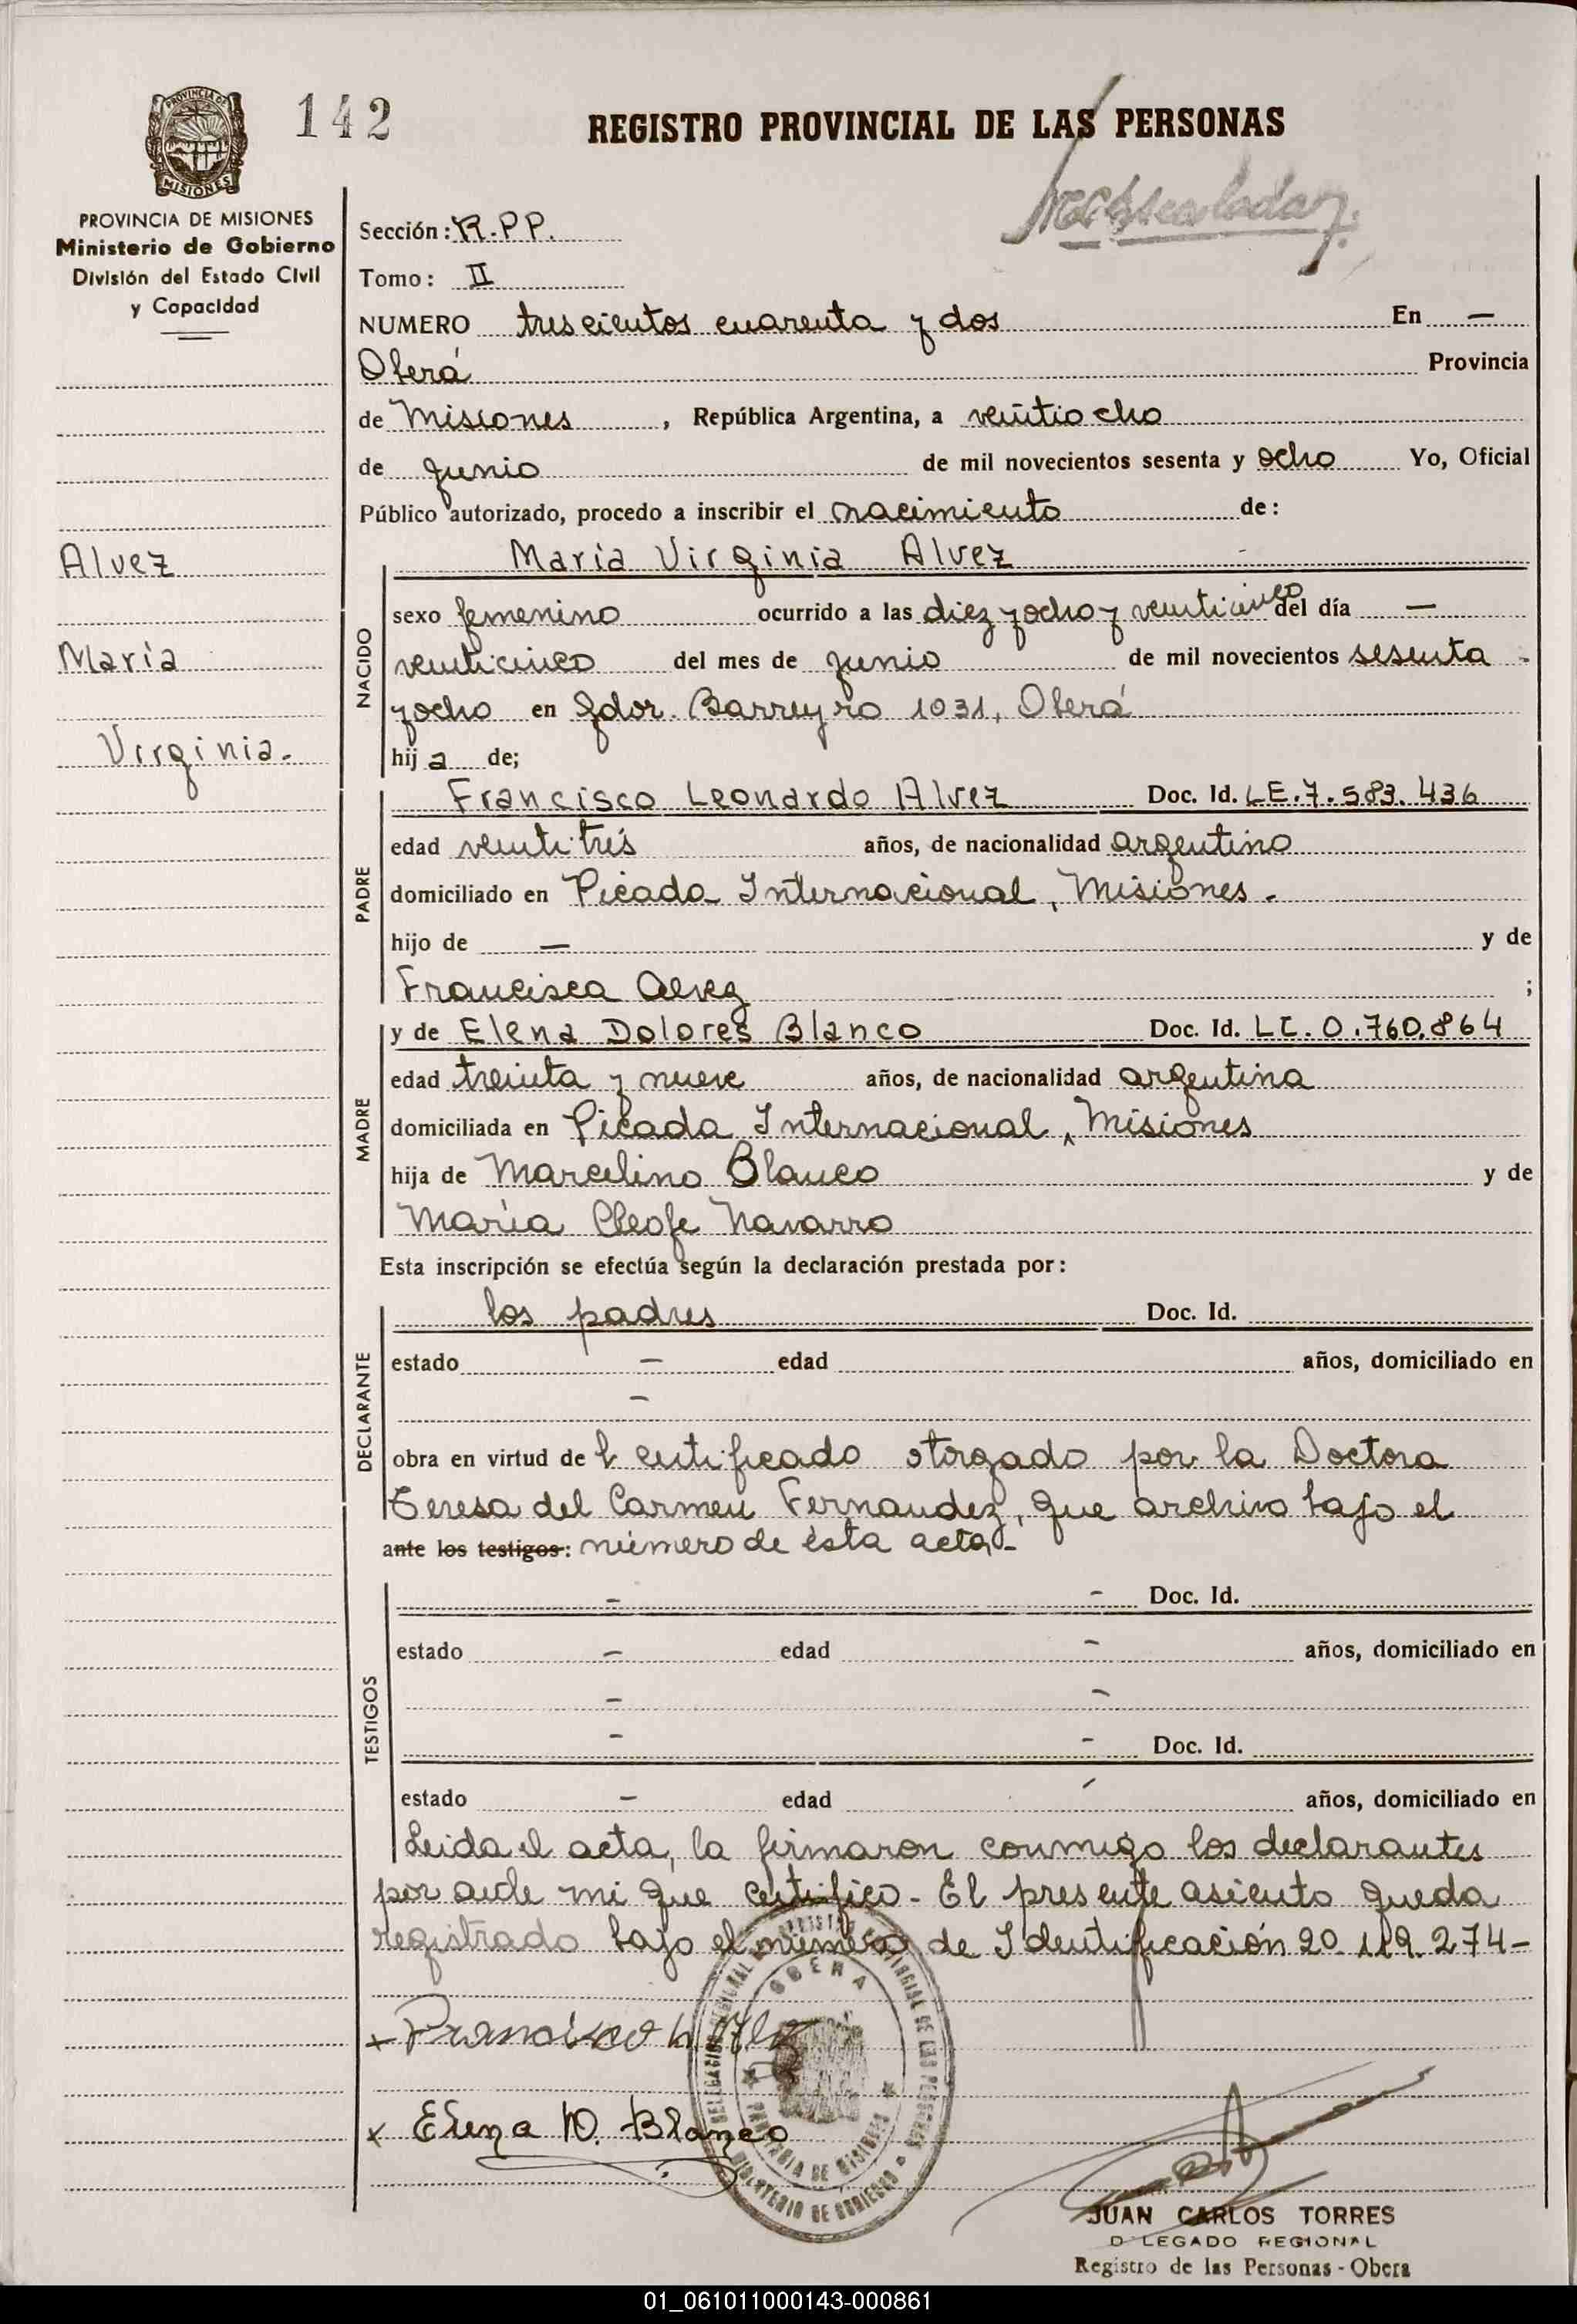 142
REGISTRO PROVINCIAL DE LAS PERSONAS
PROVINCIA DE
MISIONES
PROVINCIA DE MISIONES
Ministerio de Gobierno
División del Estado Civil
y Capacidad
Alvez
María
Virginia.
Sección: R.P.P.
Tomo: II
NUMERO trescientos cuarenta y dos En —
Oberá Provincia
de Misiones, República Argentina, a veintiocho
de junio de mil novecientos sesenta y ocho Yo, Oficial
Público autorizado, procedo a inscribir el nacimiento de:
María Virginia Alvez
NACIDO
sexo femenino ocurrido a las diez y ocho y veinticinco del día —
veinticinco del mes de junio de mil novecientos sesenta -
y ocho en Gdor. Barreyro 1031, Oberá
hija de;
PADRE
Francisco Leonardo Alvez Doc. Id. L.E. 7.583.436
edad veintitrés años, de nacionalidad argentino
domiciliado en Picada Internacional, Misiones.
hijo de — y de
Francisca Alvez ;
MADRE
y de Elena Dolores Blanco Doc. Id. L.C. 0.760.864
edad treinta y nueve años, de nacionalidad argentina
domiciliada en Picada Internacional, Misiones
hija de Marcelino Blanco y de
María Cleofe Navarro
Esta inscripción se efectúa según la declaración prestada por:
DECLARANTE
los padres Doc. Id.
estado — edad años, domiciliado en
—
obra en virtud de certificado otorgado por la Doctora
Teresa del Carmen Fernandez, que archivo bajo el
ante los testigos: número de ésta acta-
TESTIGOS
— - Doc. Id.
estado — edad - años, domiciliado en
— -
— - Doc. Id.
estado — edad - años, domiciliado en
Leida el acta, la firmaron conmigo los declarantes
por ante mi que certifico - El presente asiento queda
registrado bajo el número de Identificación 20.119.274-
OBERA
PROVINCIA DE MISIONES
MINISTERIO DE GOBIERNO
x Francisco L Alvez
x Elena D. Blanco
JUAN CARLOS TORRES
D LEGADO REGIONAL
Registro de las Personas - Obera
01_061011000143-000861